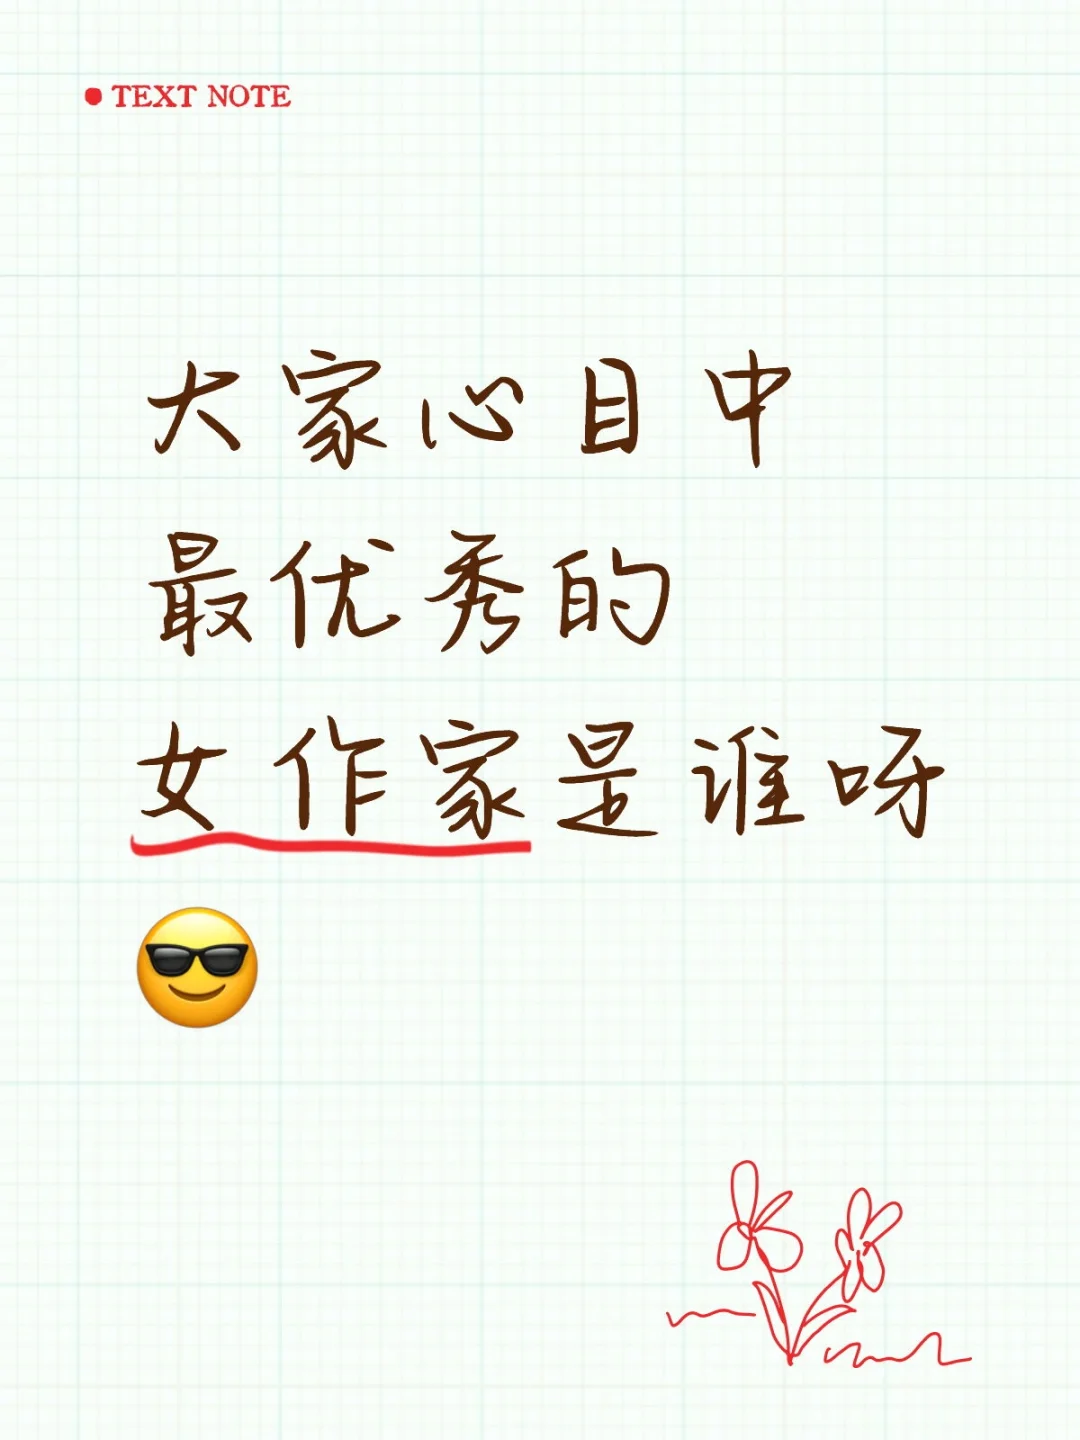 TEXT NOTE
大家心目中
最优秀的
女作家是谁呀
😎